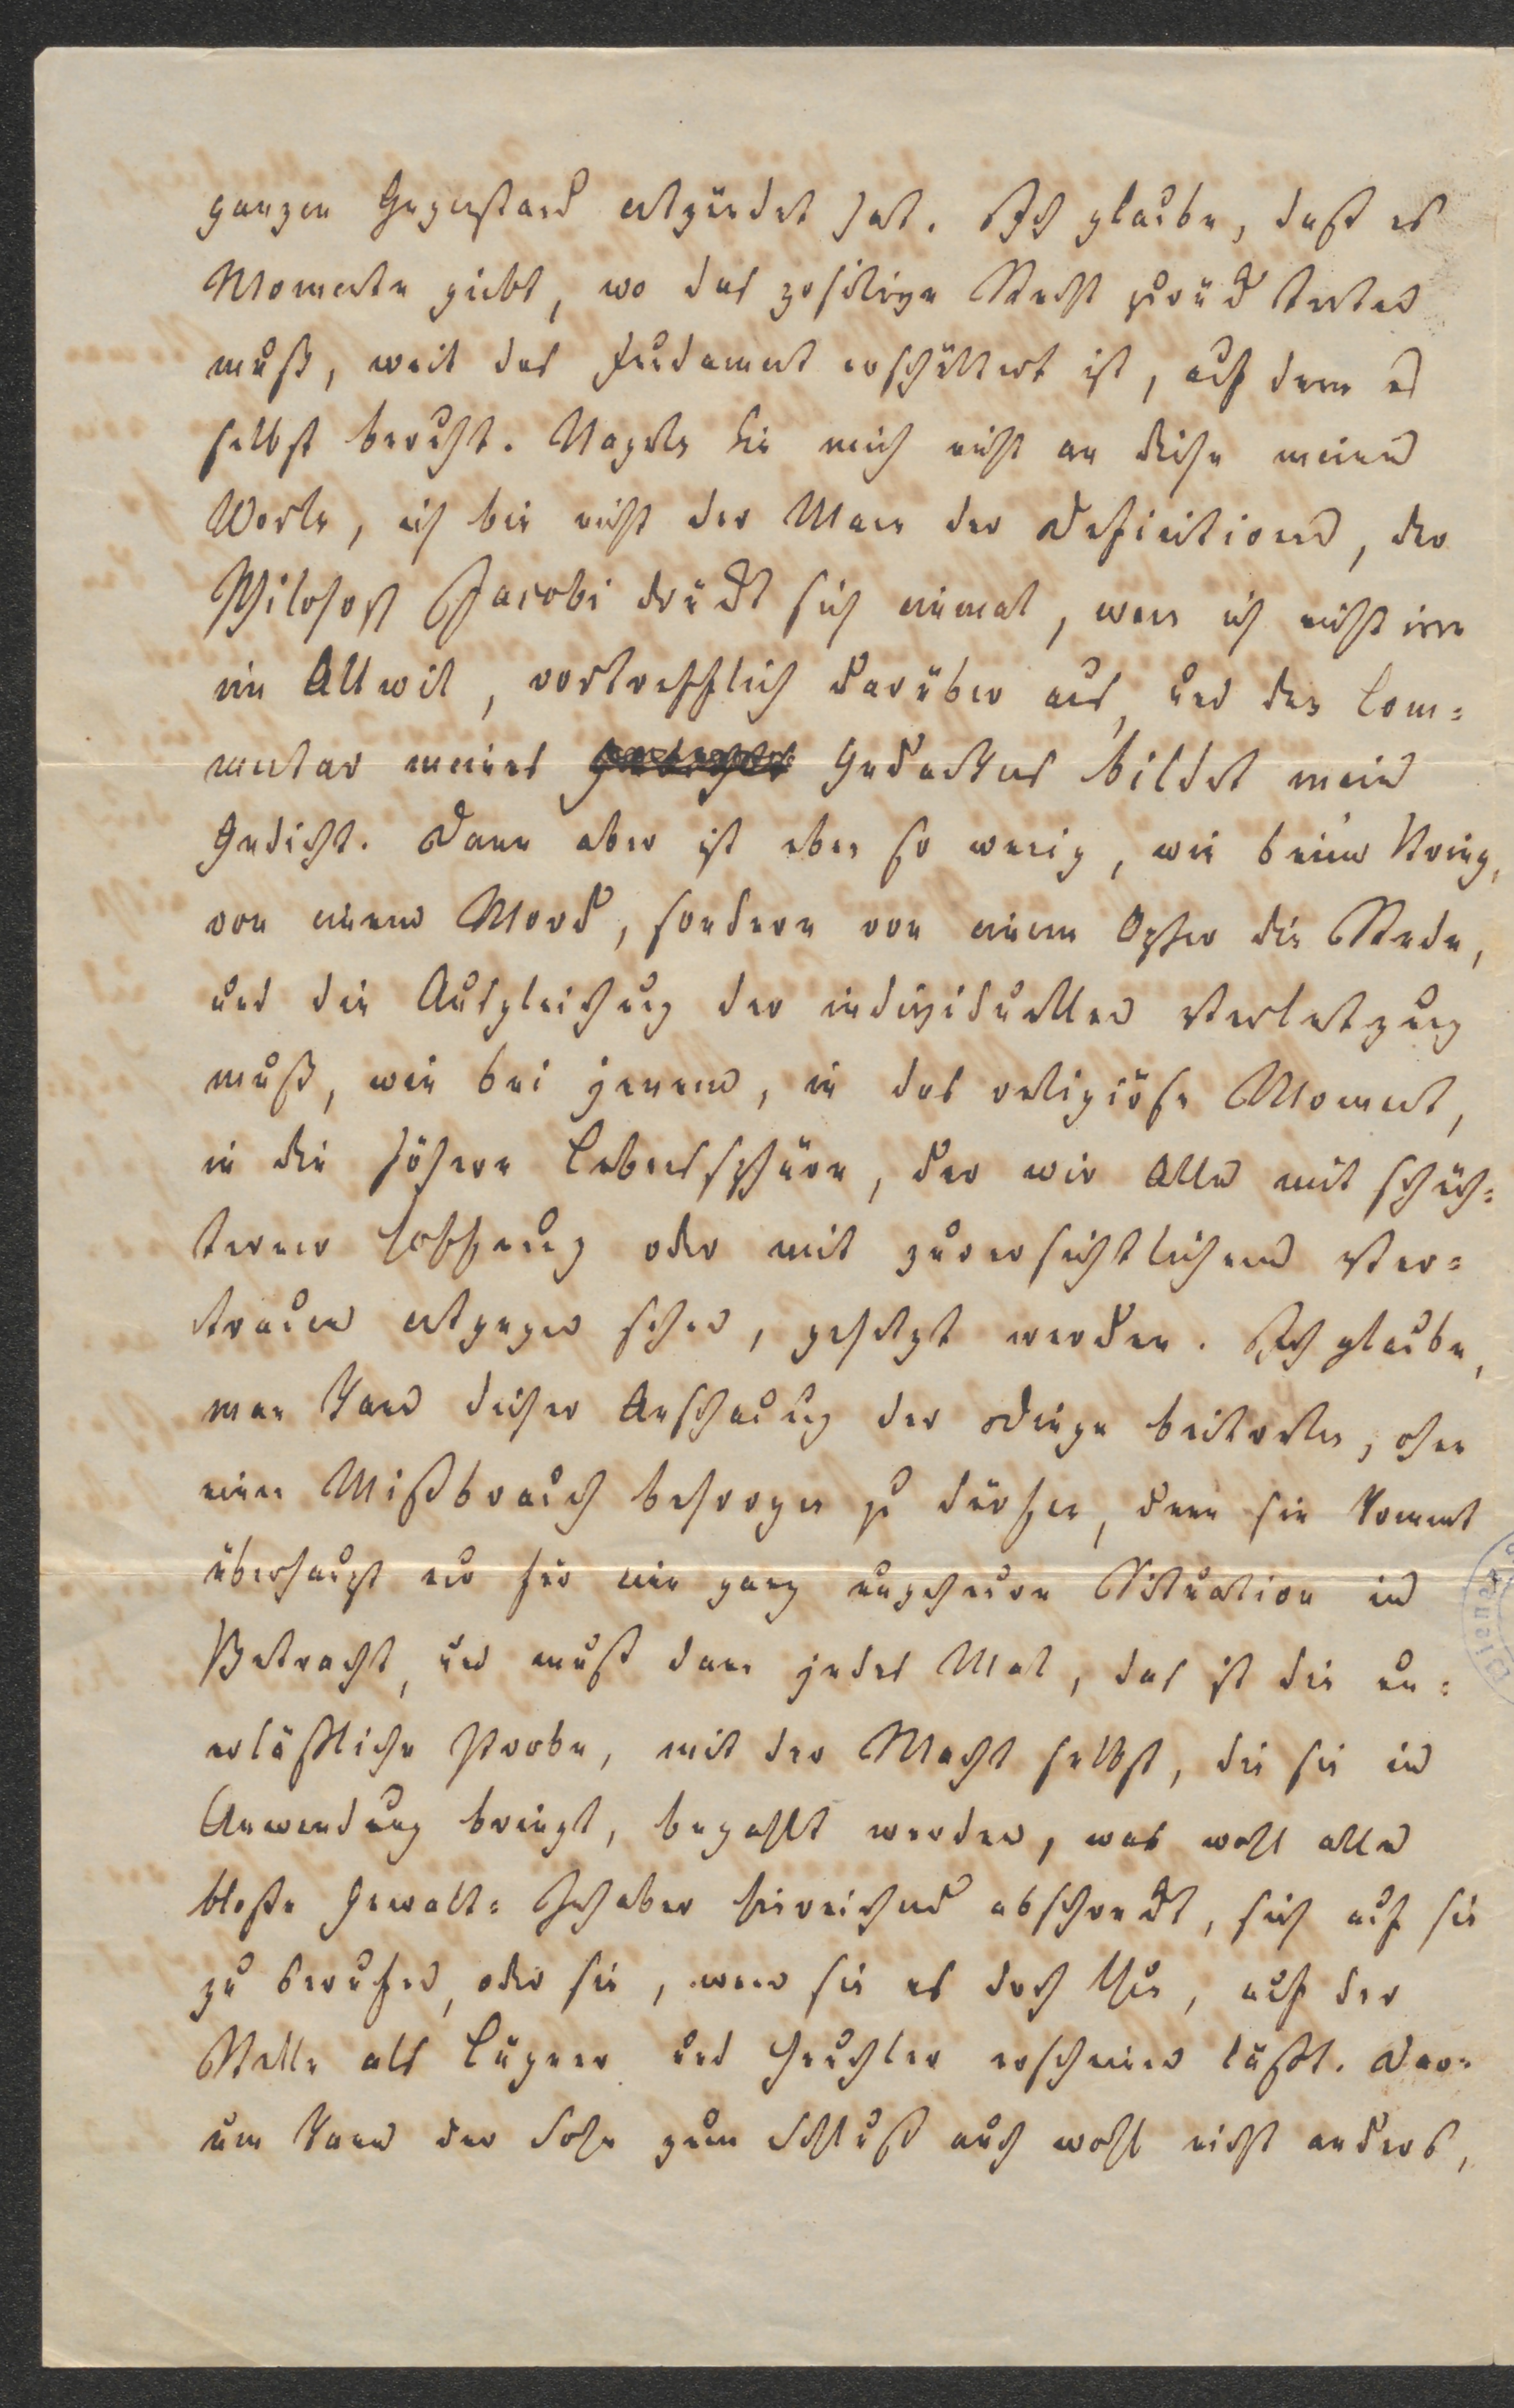 ganzen Gegenstand entzündet hat. Ich glaube, daß es
Momente giebt, wo das positive Recht zurück treten
muß, weil das Fundament erschüttert ist, auf dem es
selbst beruht. Nageln Sie mich nicht an diese meine
Worte, ich bin nicht der Mann der Definitionen, der
Philosoph Jacobi drückt sich einmal, wenn ich nicht irre
im Allwil, vortrefflich darüber aus, und den Com=
mentar meines Gedankens bildet mein
Gedicht. Dann aber ist eben so wenig, wie beim Krieg,
von einem Mord, sondern von einem Opfer die Rede,
und die Ausgleichung der individuellen Verletzung
muß, wie bei jenem, in das religiöse Moment,
in die höhere Lebenssphäre, der wir Alle mit schüch=
terner Hoffnung oder mit zuversichtlichem Ver=
trauen entgegen sehen, gesetzt werden. Ich glaube,
man kann dieser Anschauung der Dinge beitreten, ohne
einen Mißbrauch besorgen zu dürfen, denn sie kommt
überhaupt nur für eine ganz ungeheure Situation in
Betracht, und muß dann jedes Mal, das ist die un=
erläßliche Probe, mit der Macht selbst, die sie in
Anwendung bringt, bezahlt werden, was wohl alle
bloße Gewalt=Inhaber hinreichend abschreckt, sich auf sie
zu berufen, oder sie, wenn sie es doch thun, auf der
Stelle als Lügner und Heuchler erscheinen läßt. Dar=
um kann der Sohn zum Schluß auch wohl nicht anders,